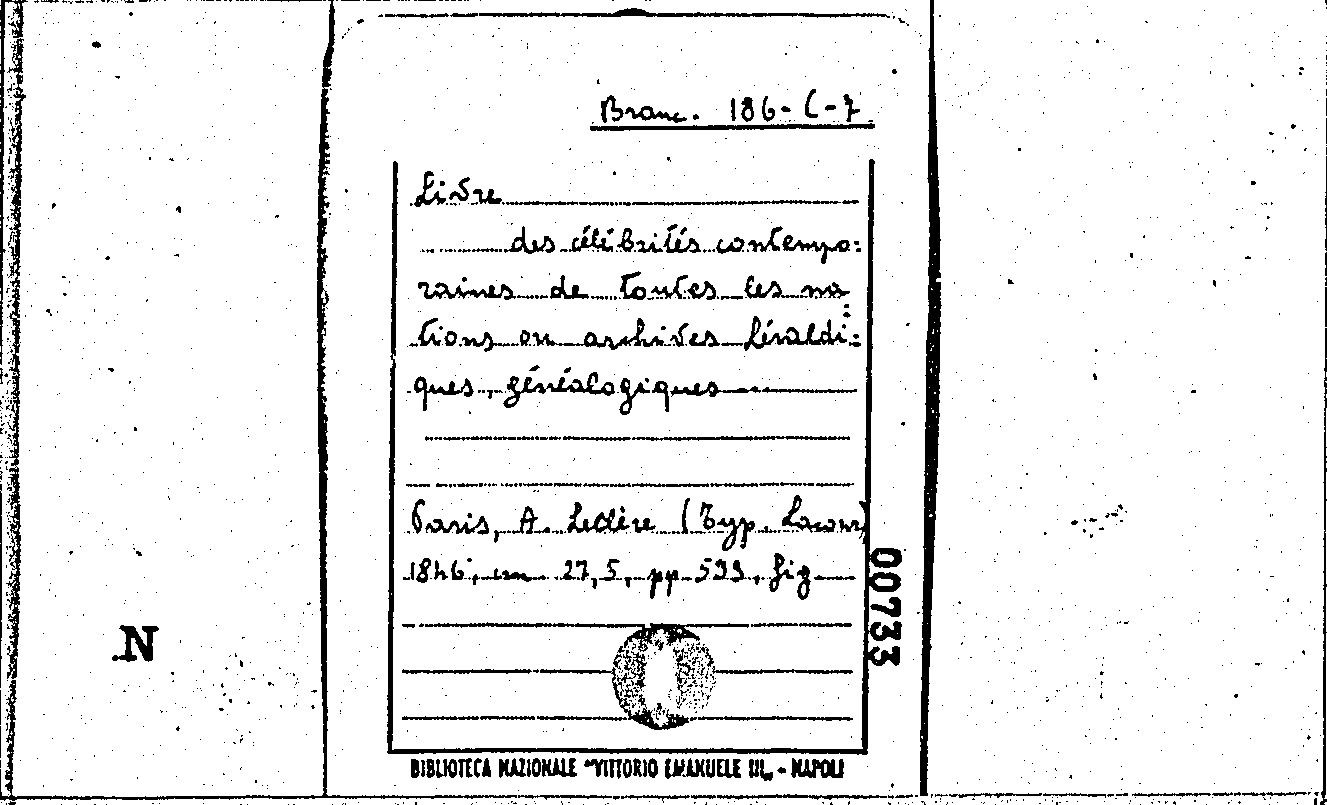 Branc. 186-C-7
Livre
des célébrités contempo=
raines de toutes les na=
tions ou archives héraldi=
ques, généalogiques
Paris, A. Leclère (Typ. Lacour)
1846, cm 27,5, pp. 599, fig.
00733
N
BIBLIOTECA NAZIONALE "VITTORIO EMANUELE III„ - NAPOLI